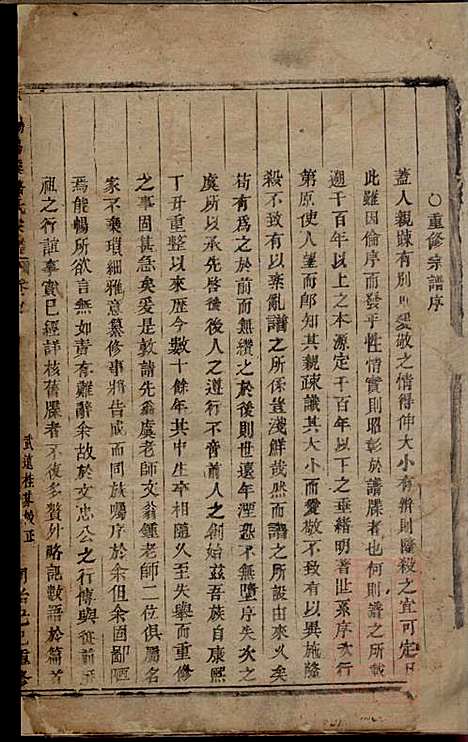 ○重修宗譜序
蓋人親疎有別則愛敬之情得伸大小有辨則隆殺之宜可定
此雖因倫序而發乎性情實則昭彰於譜牒者也何則譜之所載
遡千百年以上之本源定千百年以下之垂緒明著世系序次行
第原使人望而卽知其親疎識其大小而愛敬不致有以異施隆
殺不致有以紊亂譜之所係豈淺鮮哉然而譜之所設由來久矣
苟有爲之於前而無纘之於後則世遠年湮恐不無墮序失次之
虞所以先啓後人之遵行不啻前人之創始茲吾族自康熙
丁丑重整以來歷今數十餘年其中生卒相隨久至失舉而當
之事固甚急矣爰是敦請先翁虞老師文翁鍾老師二位俱屬名
家不棄瑣細雅意纂修事將告成而同族囑序於余但余固鄙陋
焉能暢所欲言無如責有難辭余故於文忠公之行傳與從前
祖之行誼事實已經詳核舊牒者不復多贅外略記數語於篇首